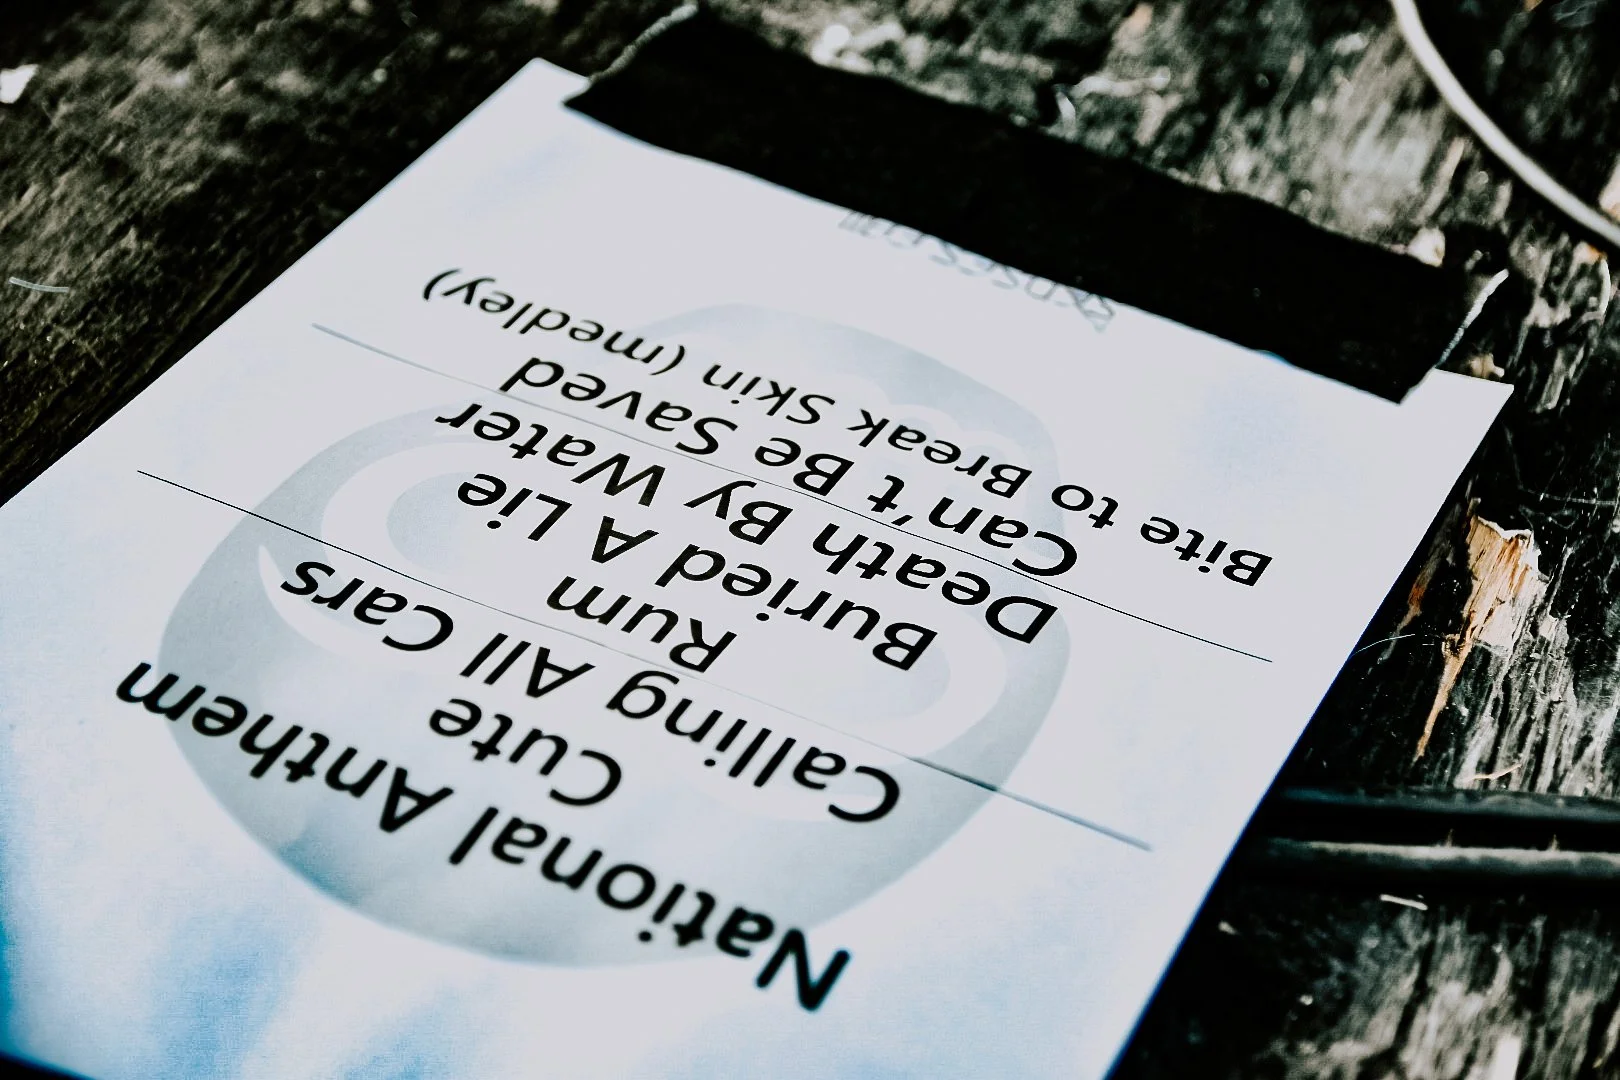 National Anthem
Cute
Calling All Cars
Rum
Buried A Lie
Death By Water
Can't Be Saved
Bite to Break Skin (medley)